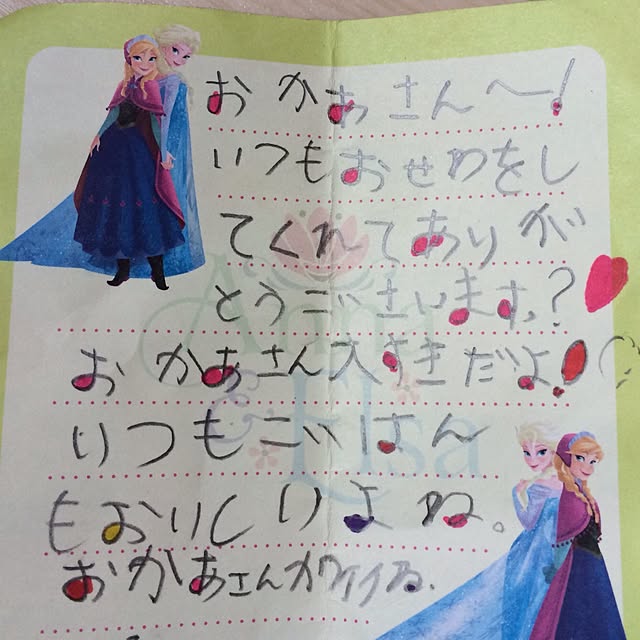 おかあさん〜!
いつもおせわをし
てくれてありが
とうございます。?
おかあさん大すきだよ!
いつもごはん
もおりしりよね。
おかあさんカワイイね.
Anna
&
Elsa